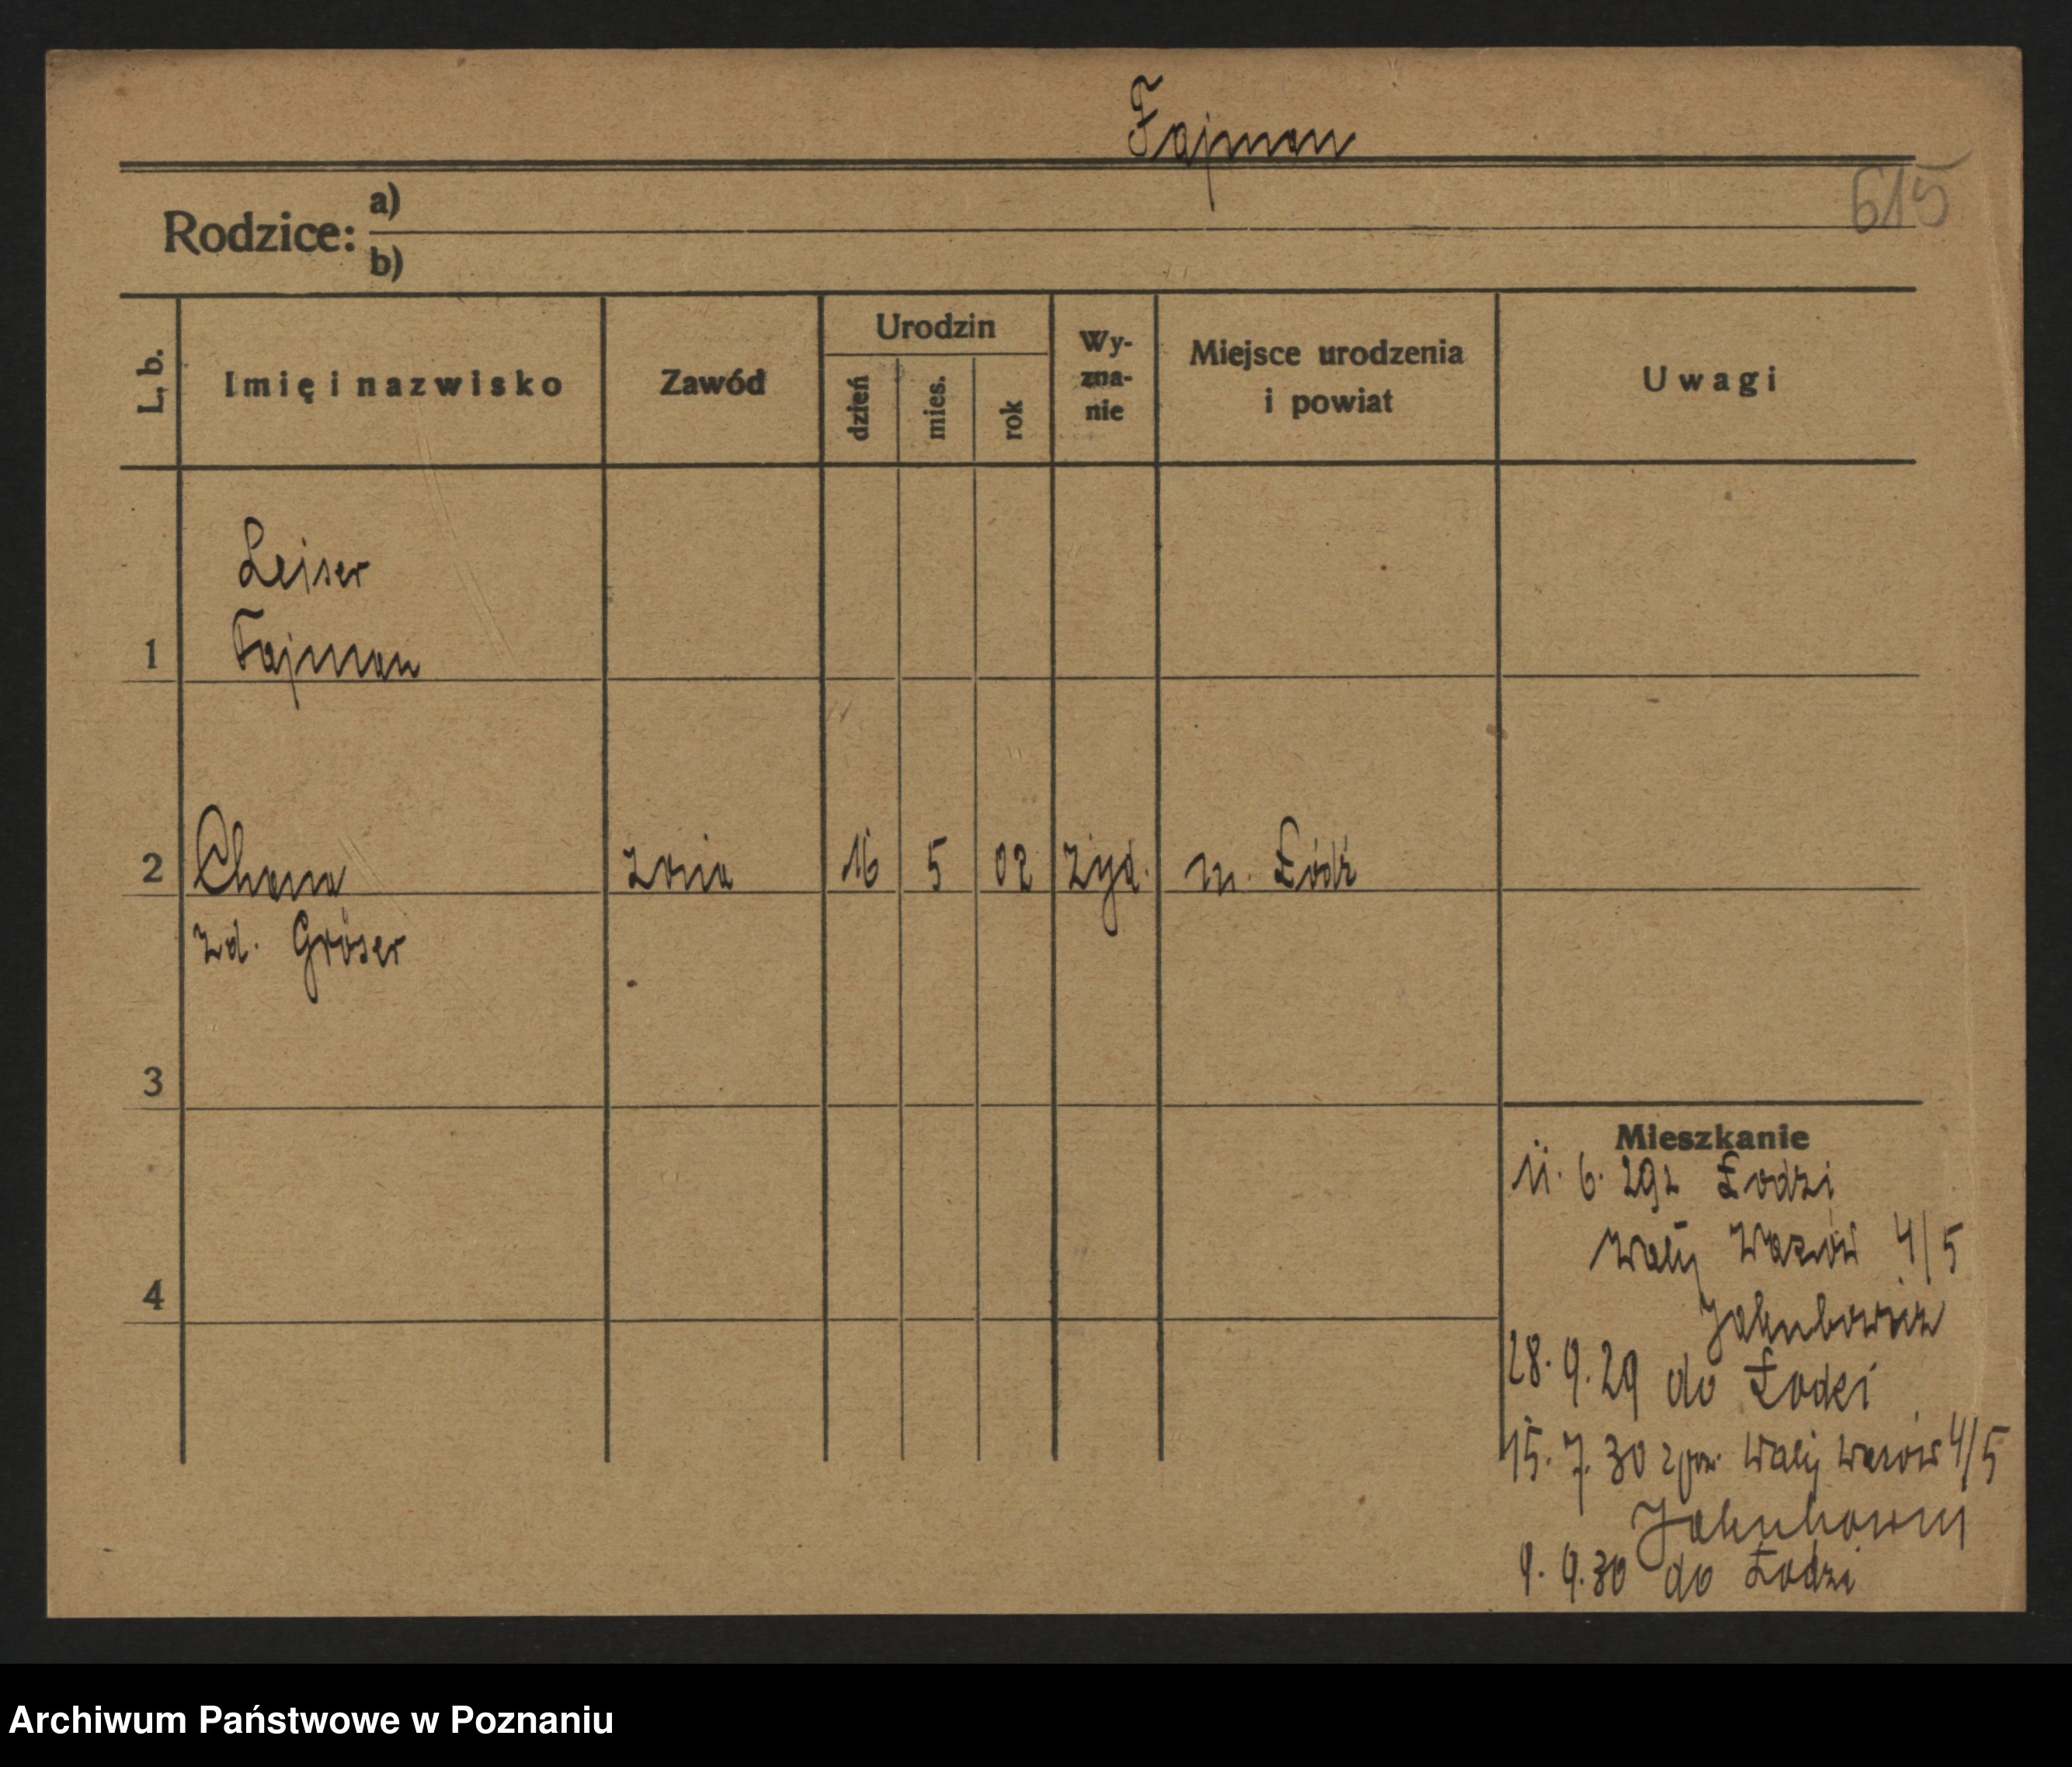 Fajman
615
Rodzice: a)
b)
L. b.
Imię i nazwisko
Zawód
Urodzin
dzień
mies.
rok
Wy-
zna-
nie
Miejsce urodzenia
i powiat
Uwagi
Lejser
1 Fajman
2 Chana żona 16 5 02 żyd. m. Łódź
zd. Gröser
3
Mieszkanie
11. 6. 29 z Łodzi
Wały Wazów 4/5
4
28. 9. 29 do Łodzi
15. 7. 30 Wały Wazów 4/5
9. 9. 30 do Łodzi
Archiwum Państwowe w Poznaniu